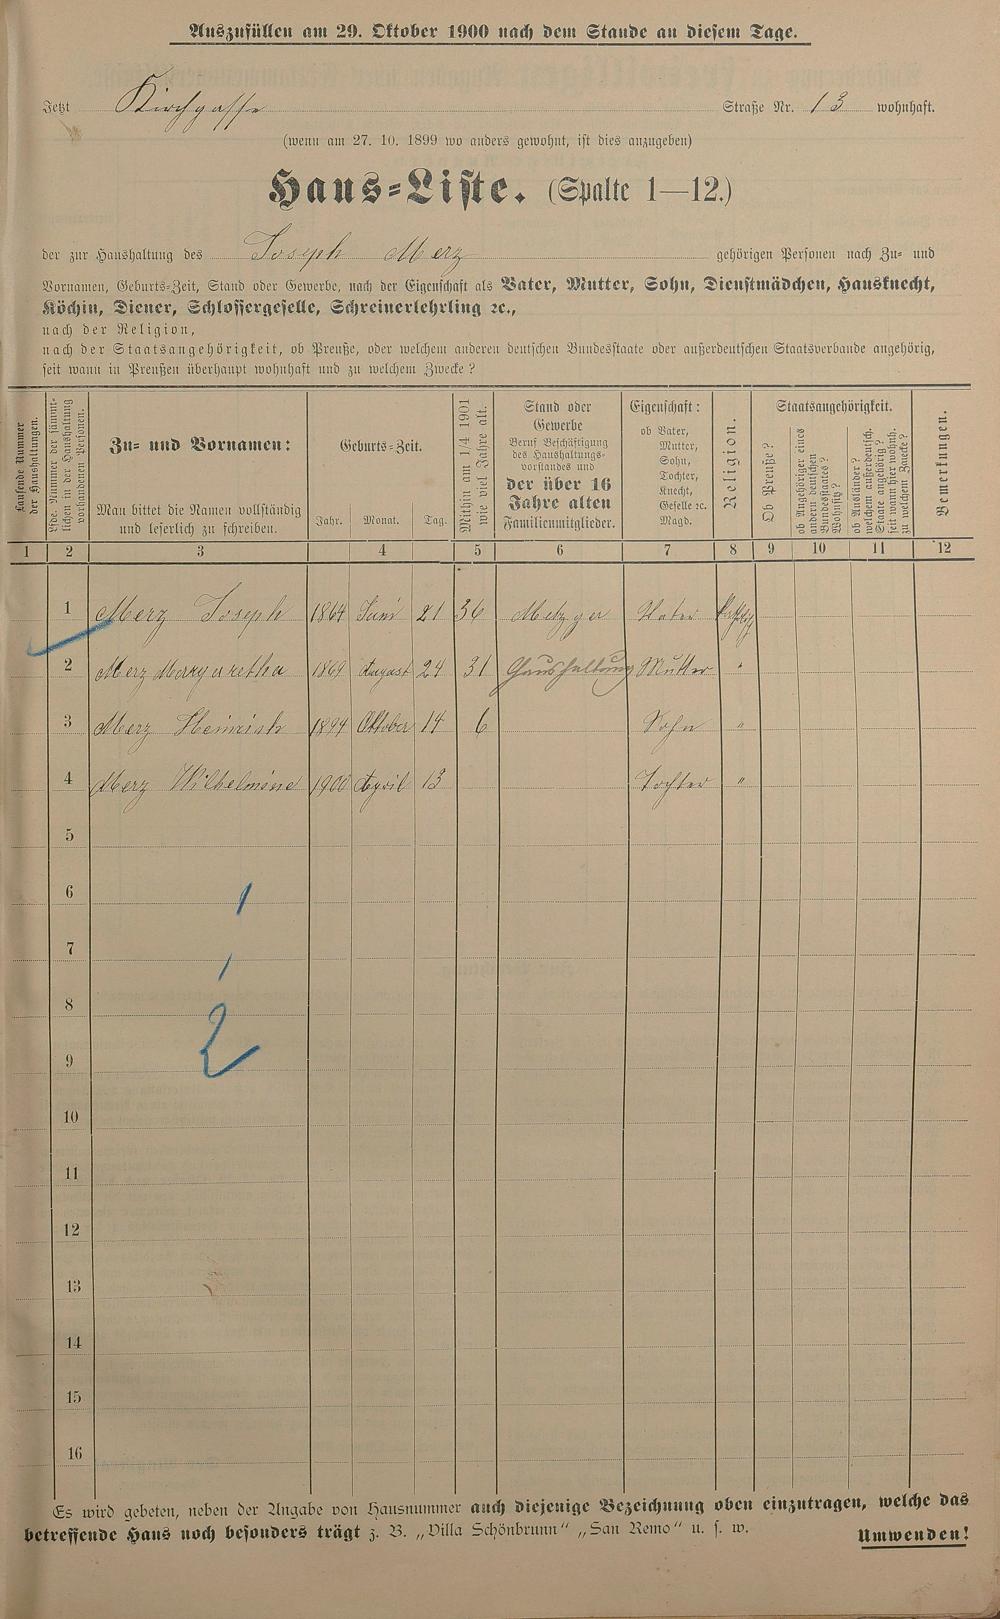 Auszufüllen am 29. Oktober 1900 nach dem Stande an diesem Tage.
Jetzt Kirchgasse Straße Nr. 13 wohnhaft.
(wenn am 27. 10. 1899 wo anders gewohnt, ist dies anzugeben)
Haus-Liste. (Spalte 1—12.)
der zur Haushaltung des Joseph Merz gehörigen Personen nach Zu- und
Vornamen, Geburts-Zeit, Stand oder Gewerbe, nach der Eigenschaft als Vater, Mutter, Sohn, Dienstmädchen, Hausknecht,
Köchin, Diener, Schlossergeselle, Schreinerlehrling ꝛc.,
nach der Religion,
nach der Staatsangehörigkeit, ob Preuße, oder welchem anderen deutschen Bundesstaate oder außerdeutschen Staatsverbande angehörig,
seit wann in Preußen überhaupt wohnhaft und zu welchem Zwecke?
Laufende Nummer
der Haushaltungen.
Lfde. Nummer der sämmt-
lichen in der Haushaltung
vorhandenen Personen.
Zu- und Vornamen:
Man bittet die Namen vollständig
und leserlich zu schreiben.
Geburts-Zeit.
Jahr. Monat. Tag.
Mithin am 1/4 1901
wie viel Jahre alt.
Stand oder
Gewerbe
Beruf Beschäftigung
des Haushaltungs-
vorstandes und
der über 16
Jahre alten
Familienmitglieder.
Eigenschaft:
ob Vater,
Mutter,
Sohn,
Tochter,
Knecht,
Geselle ꝛc.
Magd.
Religion.
Staatsangehörigkeit.
Ob Preuße?
ob Angehöriger eines
andern deutschen
Bundesstaates?
Wohnsitz?
ob Ausländer?
welchem außerdeutsch.
Staate angehörig?
seit wann hier wohnh.
zu welchem Zwecke?
Bemerkungen.
1 2 3 4 5 6 7 8 9 10 11 12
1 Merz Joseph 1864 Juni 21 36 Metzger Vater katholisch
2 Merz Margaretha 1869 August 24 31 Haushaltung Mutter "
3 Merz Heinrich 1894 Oktober 14 6 Sohn "
4 Merz Wilhelmine 1900 April 13 Tochter "
5
6 1
7 1
8
9 2
10
11
12
13
14
15
16
Es wird gebeten, neben der Angabe von Hausnummer auch diejenige Bezeichnung oben einzutragen, welche das
betreffende Haus noch besonders trägt z. B. „Villa Schönbrunn“ „San Remo“ u. s. w. Umwenden!